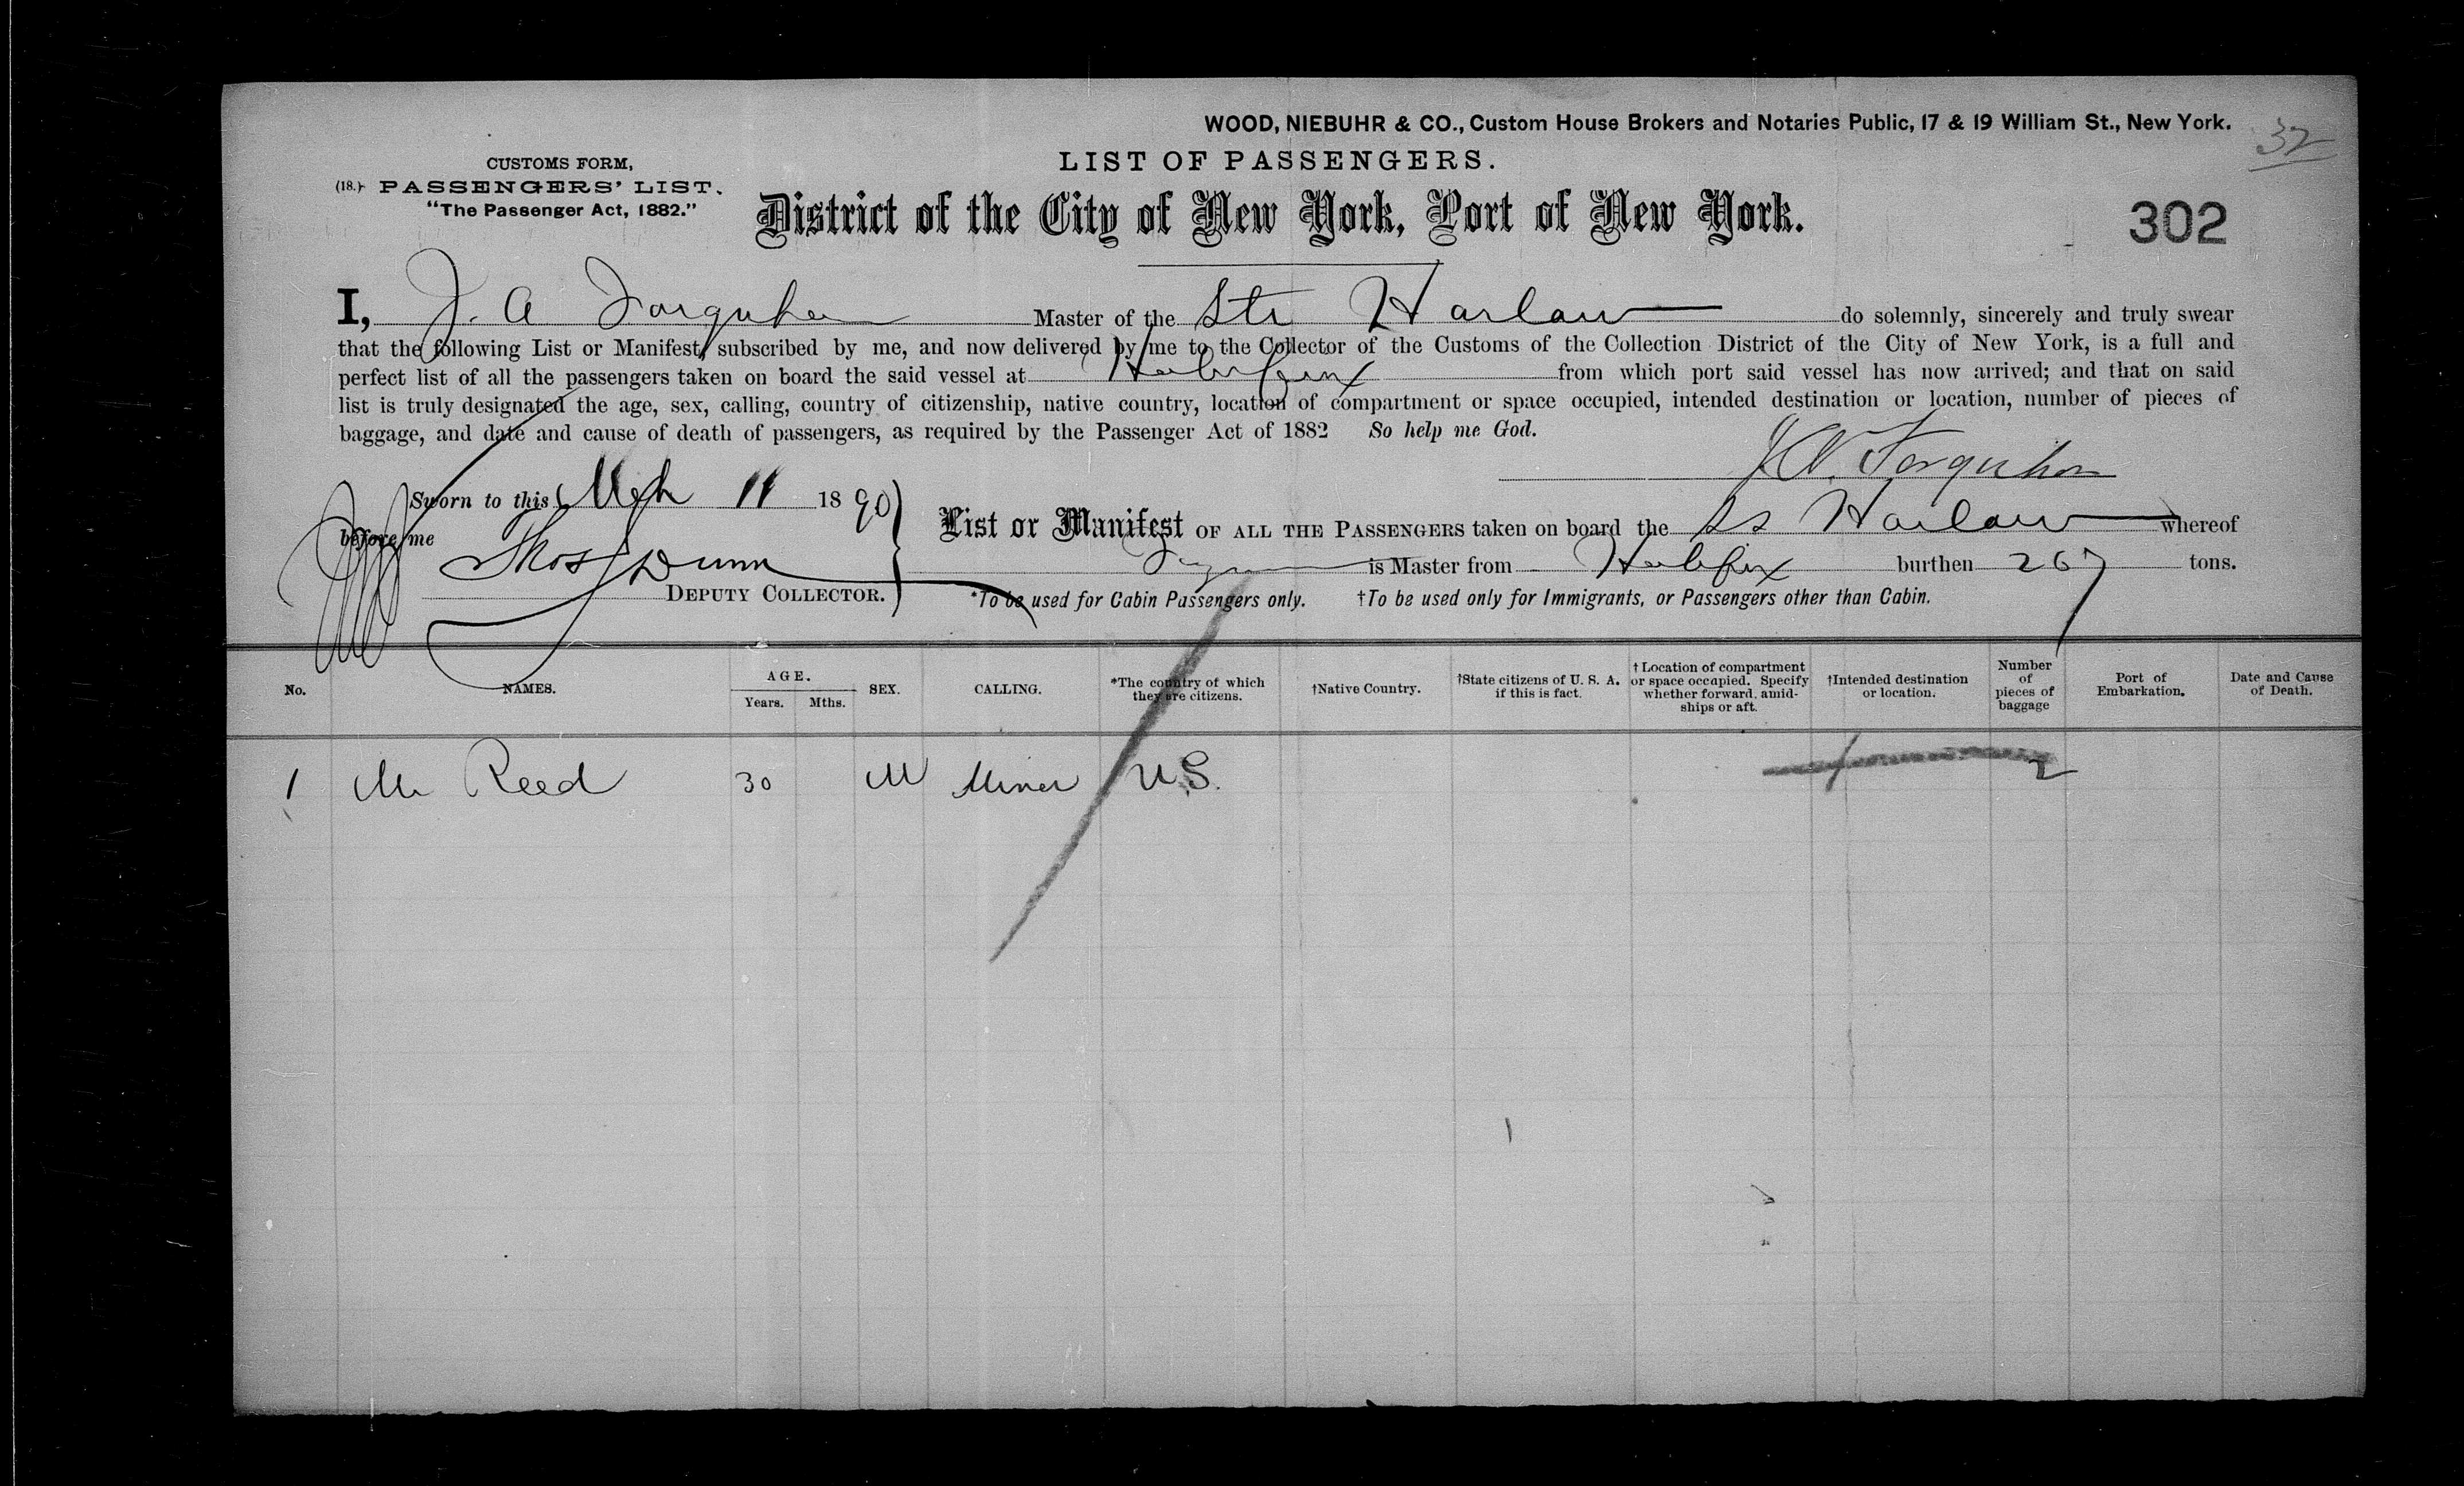 WOOD, NIEBUHR & CO., Custom House Brokers and Notaries Public, 17 & 19 William St., New York.
32
CUSTOMS FORM,
(18.) PASSENGERS' LIST.
"The Passenger Act, 1882."
LIST OF PASSENGERS.
District of the City of New York, Port of New York.
302
I, J. A Farquhar Master of the Str Harlaw do solemnly, sincerely and truly swear
that the following List or Manifest, subscribed by me, and now delivered by me to the Collector of the Customs of the Collection District of the City of New York, is a full and
perfect list of all the passengers taken on board the said vessel at Halifax from which port said vessel has now arrived; and that on said
list is truly designated the age, sex, calling, country of citizenship, native country, location of compartment or space occupied, intended destination or location, number of pieces of
baggage, and date and cause of death of passengers, as required by the Passenger Act of 1882 So help me God.
J A. Farquhar
Sworn to this Mch 11 1890
before me
Thos Dunn
DEPUTY COLLECTOR.
List or Manifest OF ALL THE PASSENGERS taken on board the SS Harlaw whereof
is Master from Halifax burthen 267 tons.
*To be used for Cabin Passengers only. †To be used only for Immigrants, or Passengers other than Cabin.
No. NAMES. AGE. Years. Mths. SEX. CALLING. *The country of which they are citizens. †Native Country. †State citizens of U. S. A. if this is fact. †Location of compartment or space occupied. Specify whether forward, amidships or aft. †Intended destination or location. Number of pieces of baggage Port of Embarkation. Date and Cause of Death.
1 Mr Reed 30 M Miner U.S. 2